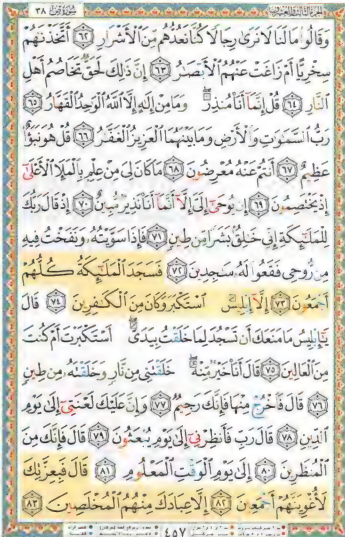 سورة ص ٣٨
وَقَالُوا۟ مَا لَنَا لَا نَرَىٰ رِجَالًا كُنَّا نَعُدُّهُم مِّنَ ٱلْأَشْرَارِ ٦٢ أَتَّخَذْنَٰهُمْ
سِخْرِيًّا أَمْ زَاغَتْ عَنْهُمُ ٱلْأَبْصَٰرُ ٦٣ إِنَّ ذَٰلِكَ لَحَقٌّ تَخَاصُمُ أَهْلِ
ٱلنَّارِ ٦٤ قُلْ إِنَّمَآ أَنَا۠ مُنذِرٌ وَمَا مِنْ إِلَٰهٍ إِلَّا ٱللَّهُ ٱلْوَٰحِدُ ٱلْقَهَّارُ ٦٥
رَبُّ ٱلسَّمَٰوَٰتِ وَٱلْأَرْضِ وَمَا بَيْنَهُمَا ٱلْعَزِيزُ ٱلْغَفَّٰرُ ٦٦ قُلْ هُوَ نَبَؤٌا۟
عَظِيمٌ ٦٧ أَنتُمْ عَنْهُ مُعْرِضُونَ ٦٨ مَا كَانَ لِىَ مِنْ عِلْمٍۭ بِٱلْمَلَإِ ٱلْأَعْلَىٰٓ
إِذْ يَخْتَصِمُونَ ٦٩ إِن يُوحَىٰٓ إِلَىَّ إِلَّآ أَنَّمَآ أَنَا۠ نَذِيرٌ مُّبِينٌ ٧٠ إِذْ قَالَ رَبُّكَ
لِلْمَلَٰٓئِكَةِ إِنِّى خَٰلِقٌۢ بَشَرًا مِّن طِينٍ ٧١ فَإِذَا سَوَّيْتُهُۥ وَنَفَخْتُ فِيهِ
مِن رُّوحِى فَقَعُوا۟ لَهُۥ سَٰجِدِينَ ٧٢ فَسَجَدَ ٱلْمَلَٰٓئِكَةُ كُلُّهُمْ
أَجْمَعُونَ ٧٣ إِلَّآ إِبْلِيسَ ٱسْتَكْبَرَ وَكَانَ مِنَ ٱلْكَٰفِرِينَ ٧٤ قَالَ
يَٰٓإِبْلِيسُ مَا مَنَعَكَ أَن تَسْجُدَ لِمَا خَلَقْتُ بِيَدَىَّ أَسْتَكْبَرْتَ أَمْ كُنتَ
مِنَ ٱلْعَالِينَ ٧٥ قَالَ أَنَا۠ خَيْرٌ مِّنْهُ خَلَقْتَنِى مِن نَّارٍ وَخَلَقْتَهُۥ مِن طِينٍ
٧٦ قَالَ فَٱخْرُجْ مِنْهَا فَإِنَّكَ رَجِيمٌ ٧٧ وَإِنَّ عَلَيْكَ لَعْنَتِىٓ إِلَىٰ يَوْمِ
ٱلدِّينِ ٧٨ قَالَ رَبِّ فَأَنظِرْنِىٓ إِلَىٰ يَوْمِ يُبْعَثُونَ ٧٩ قَالَ فَإِنَّكَ مِنَ
ٱلْمُنظَرِينَ ٨٠ إِلَىٰ يَوْمِ ٱلْوَقْتِ ٱلْمَعْلُومِ ٨١ قَالَ فَبِعِزَّتِكَ
لَأُغْوِيَنَّهُمْ أَجْمَعِينَ ٨٢ إِلَّا عِبَادَكَ مِنْهُمُ ٱلْمُخْلَصِينَ ٨٣
٤٥٧